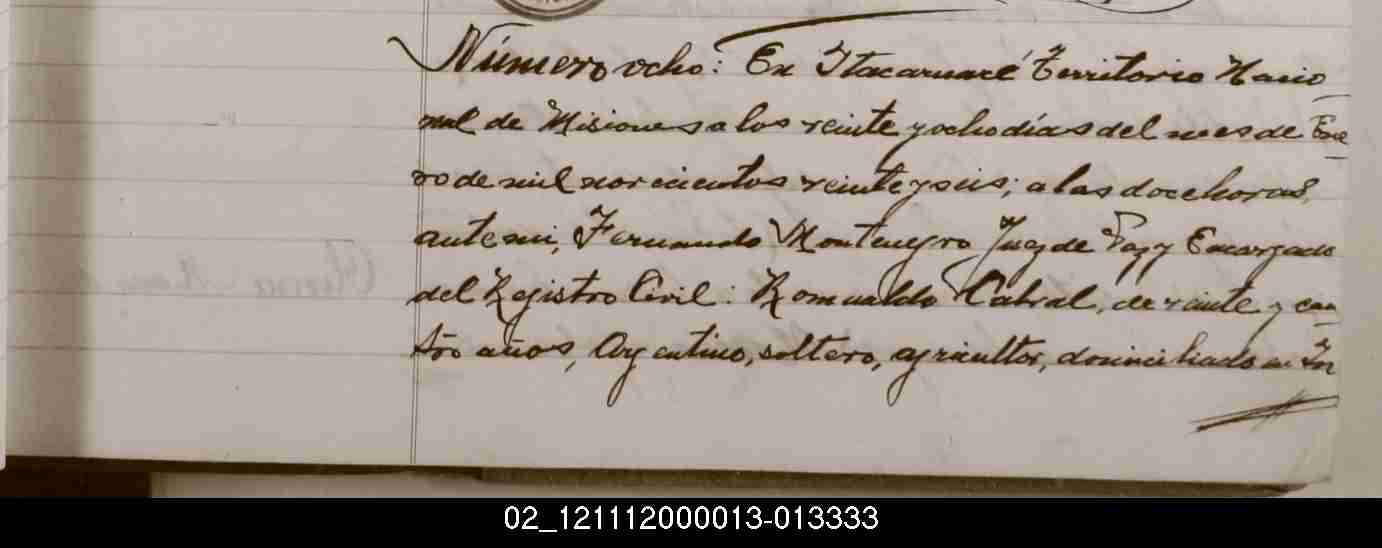 Número ocho: En Itacaruaré Territorio Nacio
nal de Misiones a los veinte y ocho días del mes de Ene
ro de mil novecientos veinte y seis; a las doce horas,
ante mi, Fernando Montenegro Juez de Paz y Encargado
del Registro Civil: Romualdo Cabral, de veinte y cua
tro años, Argentino, soltero, agricultor, domiciliado en
02_121112000013-013333